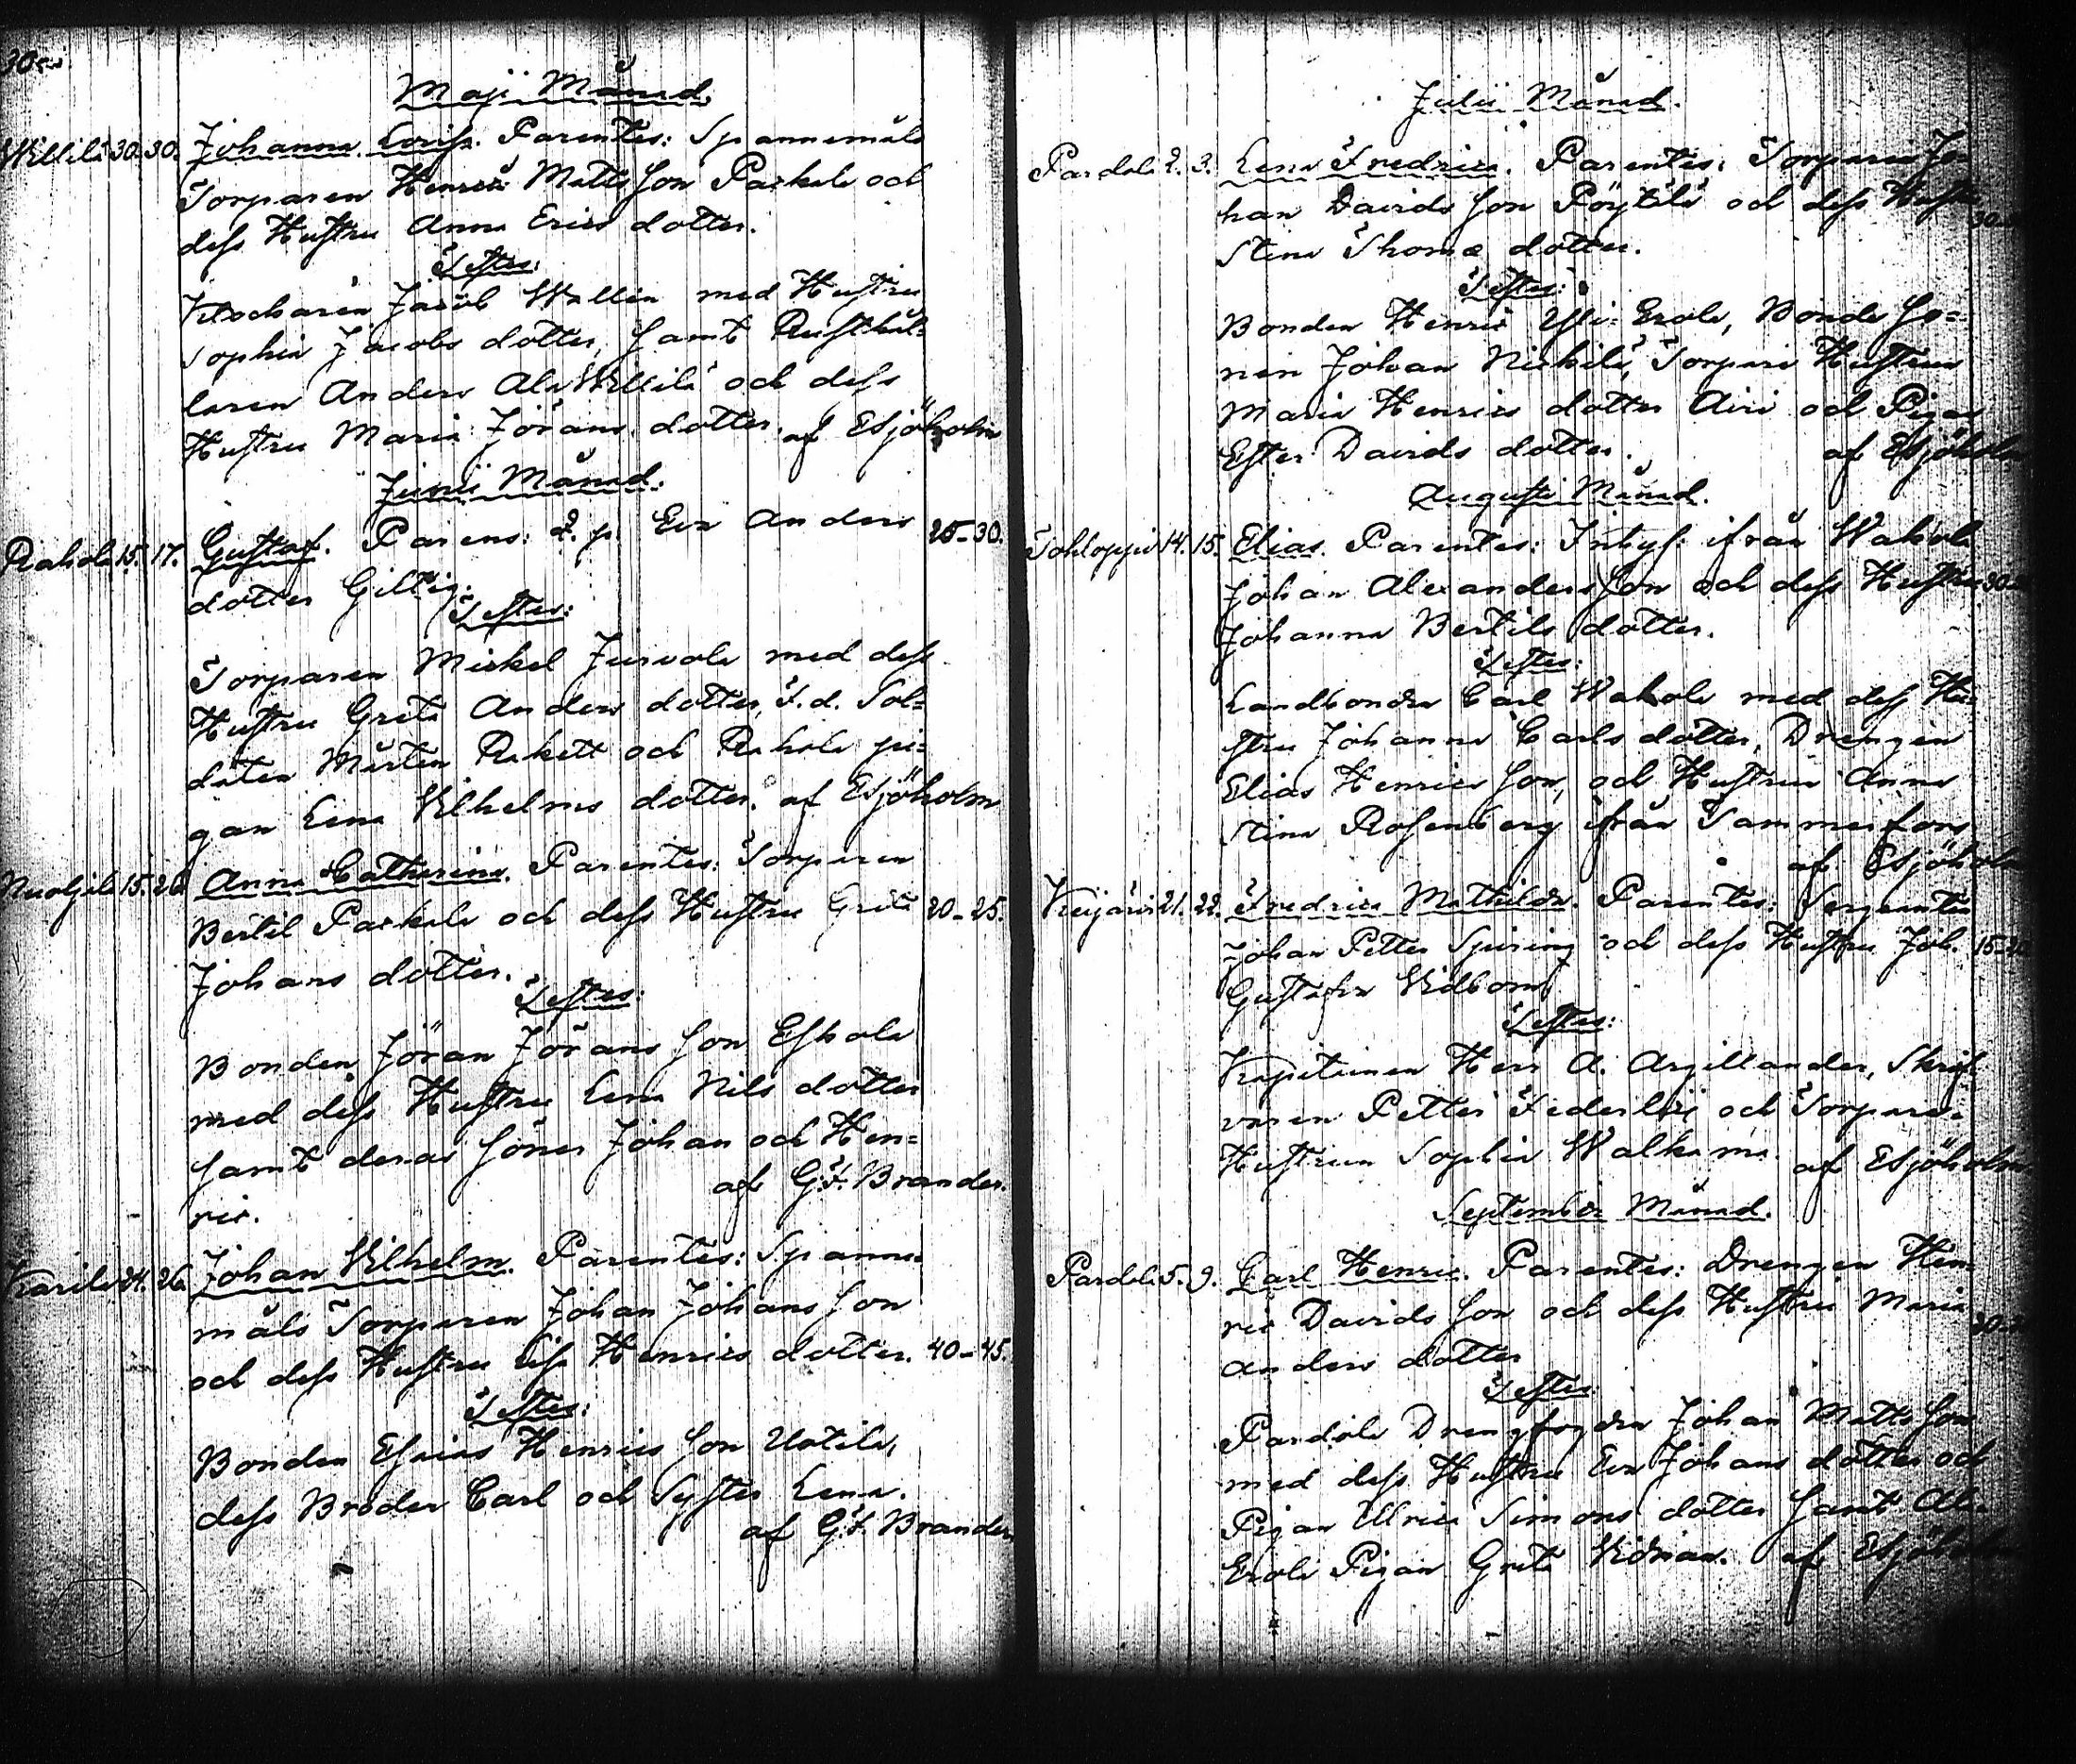 Maji Månad.
Willilä 30. 30. Johanna Lovisa. Parentes: Spannemåls
Torparen Henric Matts Son Paskala och
dess Hustru Anna Erics dotter.
Testes:
Klockaren Jacob Wallin med Hustru
Sophia Jacobs dotter, Samt Rusthål-
laren Anders Ala Willilä och dess
Hustru Maria Jörans dotter. af Esjöholm
Junii Månad.
Rahola 15. 17. Gustaf. Parens: Q. p. Eva Anders 25-30.
dotter Gillig.
Testes:
Torparen Mickel Jurvala med dess
Hustru Greta Anders dotter, F.d. Sol-
daten Mårten Rakett och Rahola pi-
gan Lena Vilhelms dotter. af Esjöholm
Nuoljala 15. 26. Anna Catharina. Parentes: Torparen
Bertil Paskala och dess Hustru Greta 20-25.
Johans dotter.
Testes:
Bonden Jöran Jörans Son Eskola
med dess Hustru Lena Nils dotter
Samt deras Söner Johan och Hen-
ric. af G.F. Brander.
Karila 24. 26. Johan Vilhelm. Parentes: Spanne-
måls Torparen Johan Johans Son
och dess Hustru Lisa Henrics dotter. 40-45.
Testes:
Bonden Esaias Henrics Son Uotila,
dess Broder Carl och Syster Lena.
af G.F. Brander
Julii Månad.
Pardala 2. 3. Lena Fredrica. Parentes: Torparen Jo-
han Davids Son Pöytälä och dess Hustru
Stina Thomæ dotter.
Testes:
Bonden Henric Yli-Erola, Bonde So-
nen Johan Nickilä, Torpare Hustrun
Maria Henrics dotter Airi och Pigan
Ester Davids dotter. af Esjöholm
Augusti Månad.
Tohloppi 14. 15. Elias. Parentes: Inhys: ifrån Wahola
Johan Alexanders Son och dess Hustru
Johanna Bertils dotter.
Testes:
Landbonden Carl Wahola med dess Hu-
stru Johanna Carls dotter, Drengen
Elias Henrics Son, och Hustrun Anna
Stina Rosenberg ifrån Tammerfors
af Esjöholm
21. 22. Fredrica Mathilda. Parentes: Sergeanten
Johan Petter Spiring och dess Hustru Joh.
Gustafva Widbom
Testes:
Kapitainen Herr A. Argillander, Skrif-
varen Petter Federley och Torpare
Hustrun Sophia Walkama. af Esjöholm
September Månad.
Pardala 5. 9. Carl Henric. Parentes: Drengen Hen-
ric Davids Son och dess Hustru Maria
Anders dotter
Testes
Pardala Drengfogden Johan Matts Son
med dess Hustru Eva Johans dotter och
Pigan Ulrica Simons dotter Samt Ala-
Erola Pigan Greta af Esjöholm